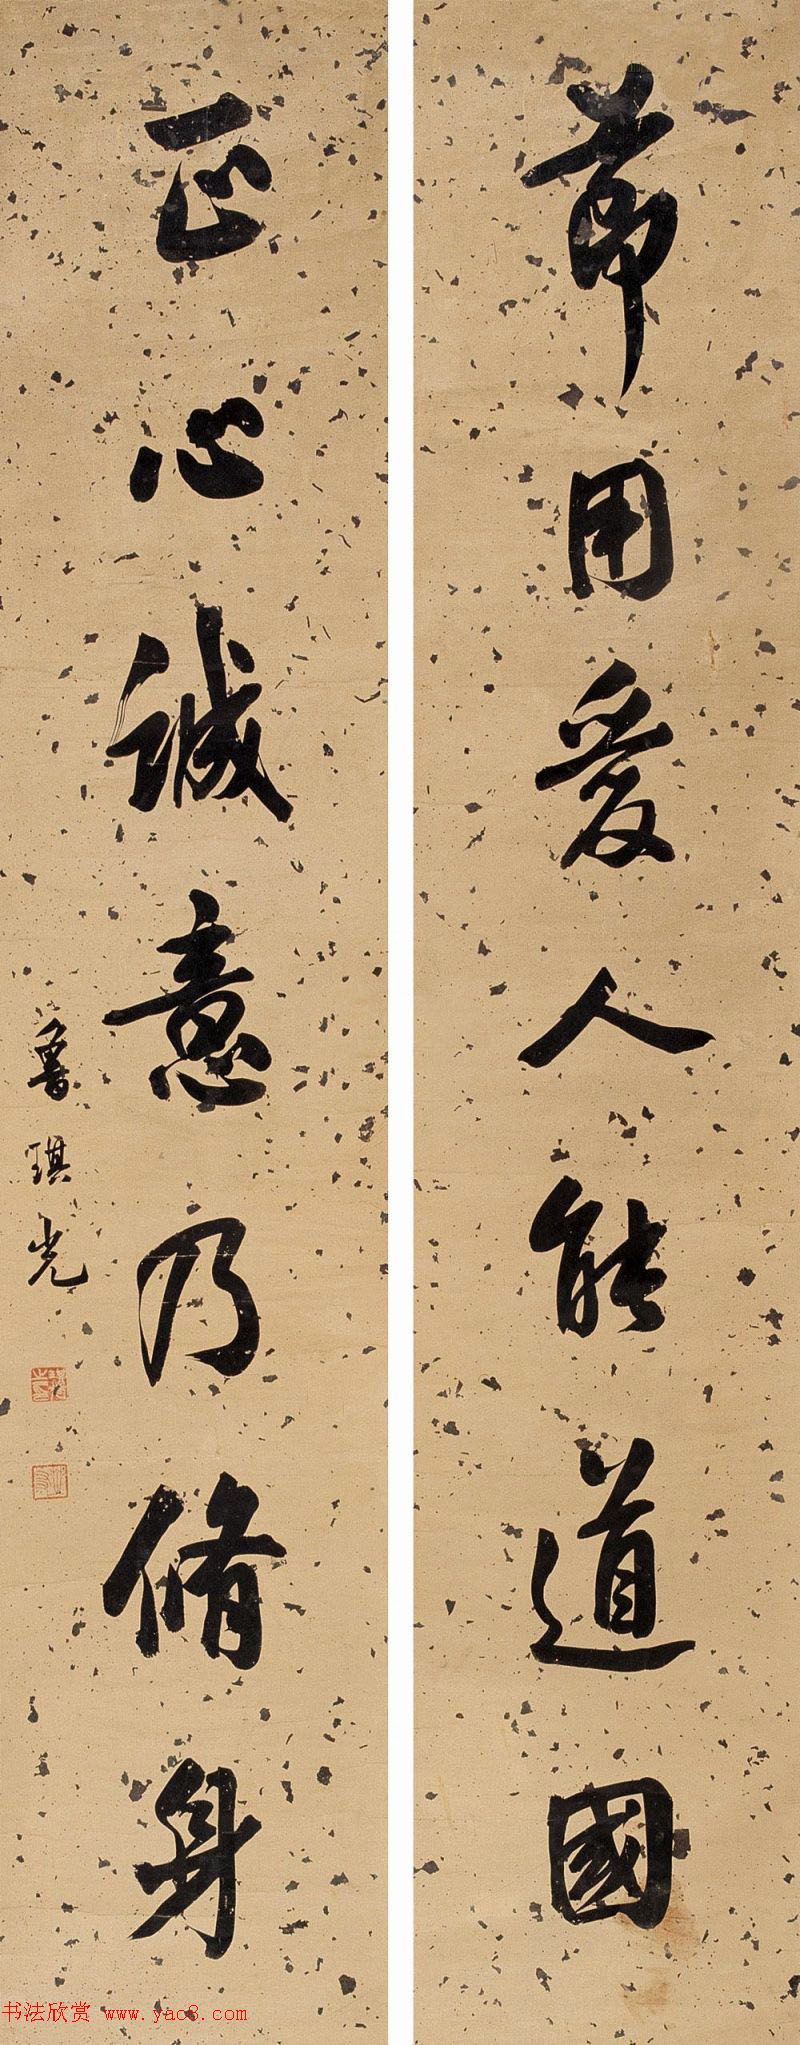 節用愛人能道國
正心誠意乃脩身
魯琪光
书法欣赏 www.yac8.com